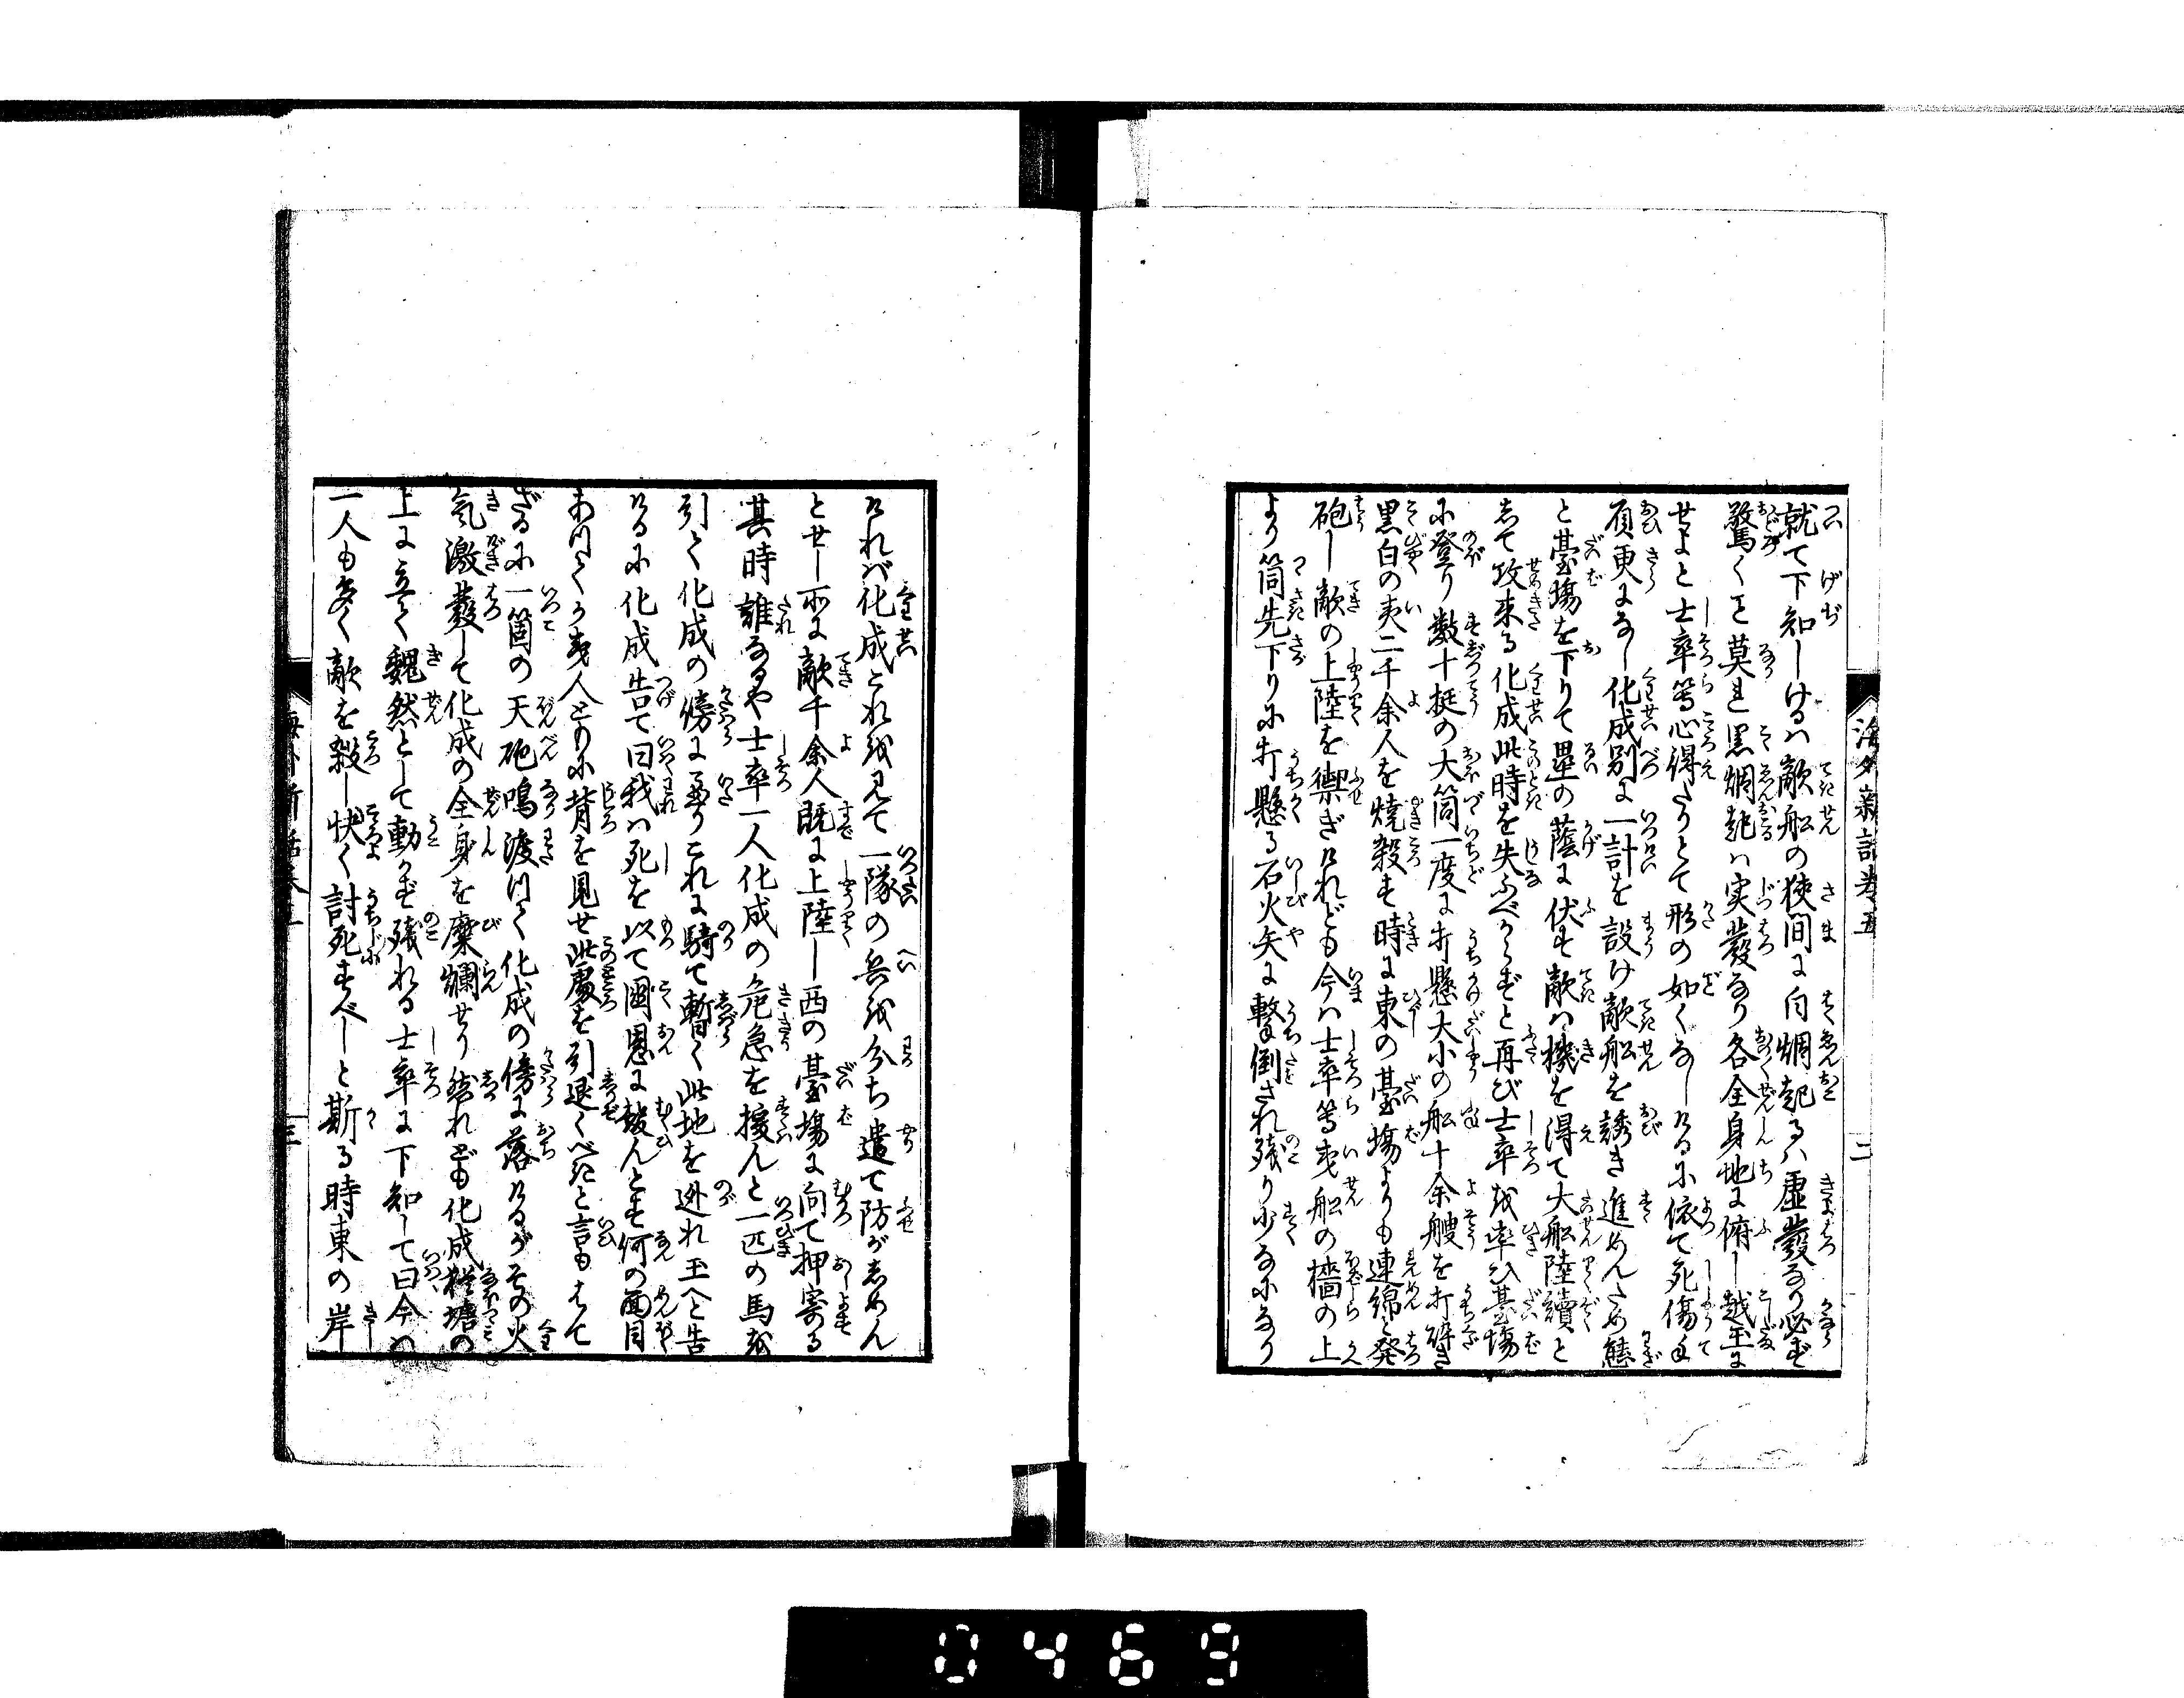 海外新話巻五
二
就て下知しけるハ敵舩の狹間に白烟起るハ虚發なり必ず
驚くこと莫れ黒烟起ハ実發なり各全身地に俯し越玉に
せよと士卒等心得たりとて形の如くなしけるに依て死傷の
更になし化成別に一計を設け敵舩を誘き進めんため態
と臺場を下りて壘の蔭に伏す敵ハ機を得て大舩陸續と
して攻来る化成此時を失ふべからずと再び士卒を率ひ臺場
に登り数十挺の大筒一度に打懸大小の舩十余艘を打碎き
黒白の夷二千余人を焼殺す時に東の臺場よりも連綿と発
砲し敵の上陸を禦ぎけれども今ハ士卒等夷舩の檣の上
より筒先下りに打懸る石火矢に撃倒され残り少なになり
けれバ化成これを見て一隊の兵を分ち遣て防がしめん
とせし所に敵千余人既に上陸し西の臺場に向て押寄る
其時誰なるや士卒一人化成の危急を援んと一匹の馬を
引て化成の傍に至りこれに騎て暫く此地を迯れ玉へと告
けるに化成告て曰我ハ死を以て國恩に報んとす何の面目
あつてか夷人どもに背を見せ此處を引退くべきと言もはて
ざるに一箇の天砲鳴渡つて化成の傍に落けるがその火
気激發して化成の全身を糜爛せり然れども化成猶塘の
上に立て魏然として動かず残れる士卒に下知して曰今ハ
一人も多く敵を殺し快く討死すべしと斯る時東の岸
海外新話巻五
三
0469